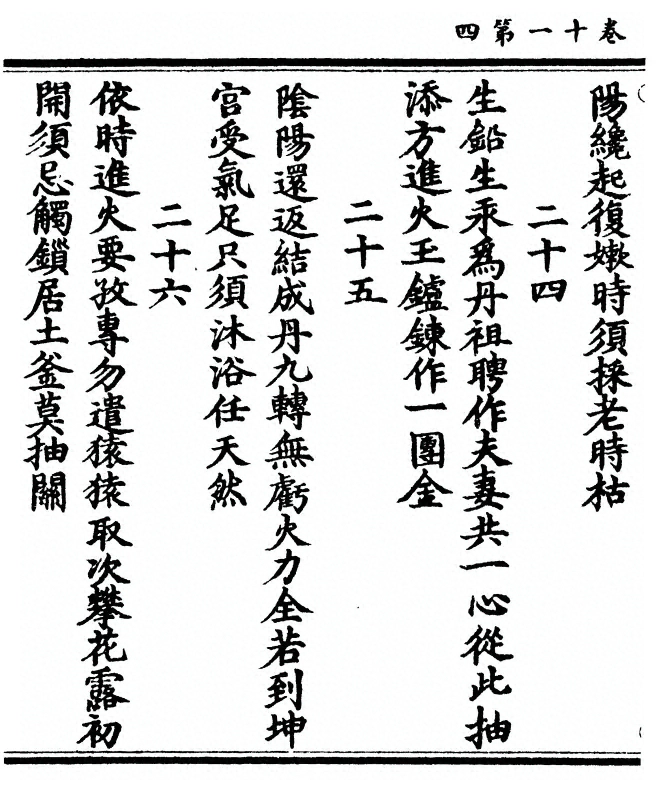 卷十一第四
陽纔起復嫩時須採老時枯
二十四
生鉛生汞爲丹祖聘作夫妻共一心從此抽
添方進火玉鑪鍊作一團金
二十五
陰陽還返結成丹九轉無虧火力全若到坤
宮受氣足只須沐浴任天然
二十六
依時進火要孜專勿遣猿猿取次攀花露初
開須忌觸鎖居土釜莫抽關